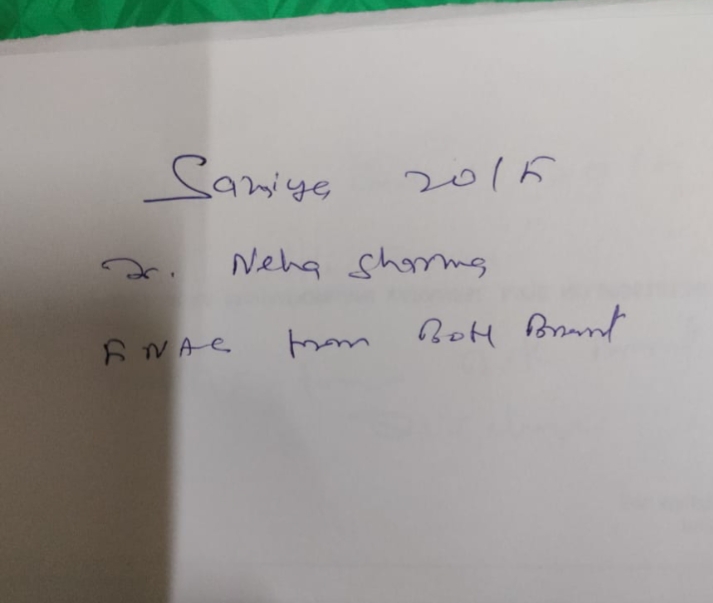 Saniya 20/F
Dr. Neha Sharma
FNAC from Both Breast